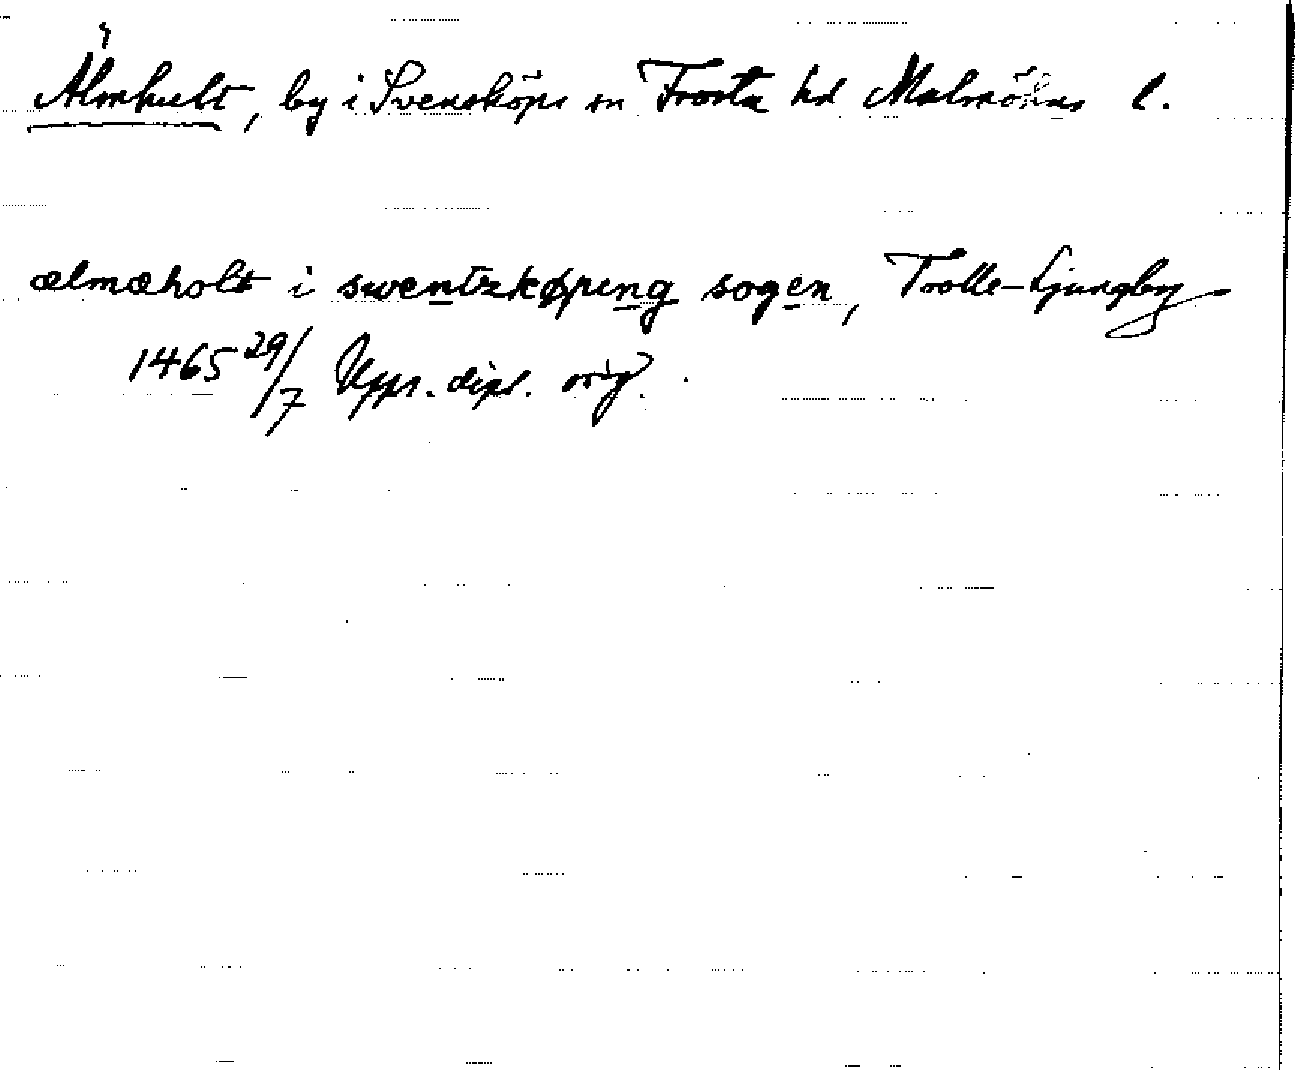 Älmhult, by i Svensköps sn Frosta hd Malmöhus l.
ælmæholt i swentzkøping sogen, Trolle-Ljungby
1465 29/7 Upps. dipl. orig.